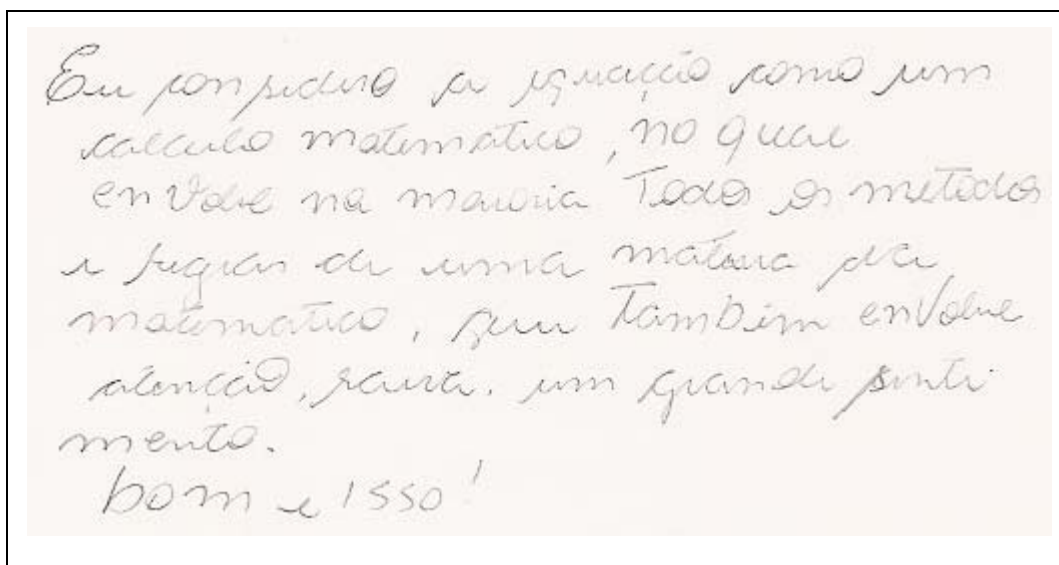 Eu considero a equação como um
calculo matematico, no qual
envolve na maioria Todos os metodos
e regras de uma matéria da
matematica, que Também envolve
atenção, um grande senti
mento.
bom e isso!